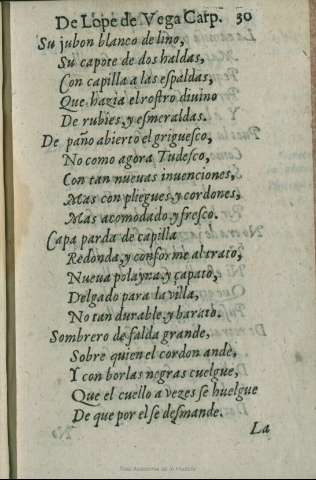 De Lope de Vega Carp. 30
Su jubon blanco de lino,
Su capote de dos haldas,
Con capilla a las espaldas,
Que hazia el rostro diuino
De rubies, y esmeraldas.
De paño abierto el griguesco,
No como agora Tudesco,
Con tan nueuas inuenciones,
Mas con pliegues, y cordones,
Mas acomodado, y fresco.
Capa parda de capilla
Redonda, y conforme al trato,
Nueua polayna, y çapato,
Delgado para la villa,
No tan durable, y barato.
Sombrero de falda grande,
Sobre quien el cordon ande,
Y con borlas negras cuelgue,
Que el cuello a vezes se huelgue
De que por el se desmande.
La
Real Academia de la Historia